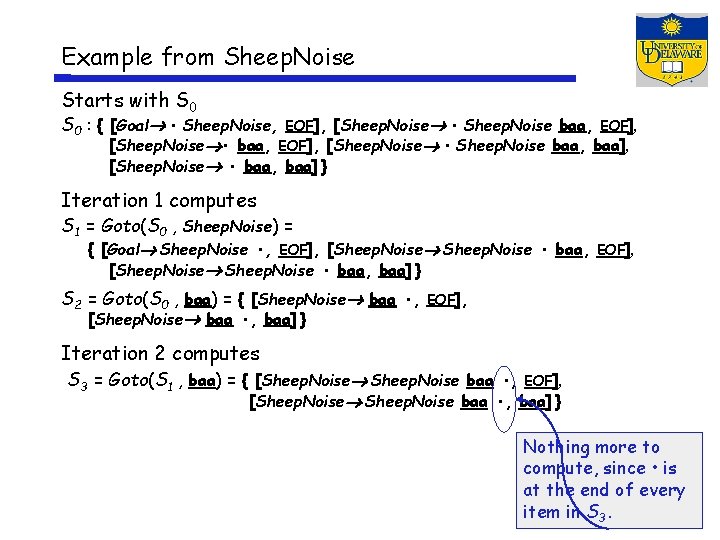 Example from Sheep.Noise
UNIVERSITY OF
DELAWARE
1743
Starts with S0
S0 : { [Goal→ • Sheep.Noise, EOF], [Sheep.Noise→ • Sheep.Noise baa, EOF],
[Sheep.Noise→• baa, EOF], [Sheep.Noise→ • Sheep.Noise baa, baa],
[Sheep.Noise→ • baa, baa] }
Iteration 1 computes
S1 = Goto(S0 , Sheep.Noise) =
{ [Goal→ Sheep.Noise •, EOF], [Sheep.Noise→ Sheep.Noise • baa, EOF],
[Sheep.Noise→ Sheep.Noise • baa, baa] }
S2 = Goto(S0 , baa) = { [Sheep.Noise→ baa •, EOF],
[Sheep.Noise→ baa •, baa] }
Iteration 2 computes
S3 = Goto(S1 , baa) = { [Sheep.Noise→ Sheep.Noise baa •, EOF],
[Sheep.Noise→ Sheep.Noise baa •, baa] }
Nothing more to
compute, since • is
at the end of every
item in S3.